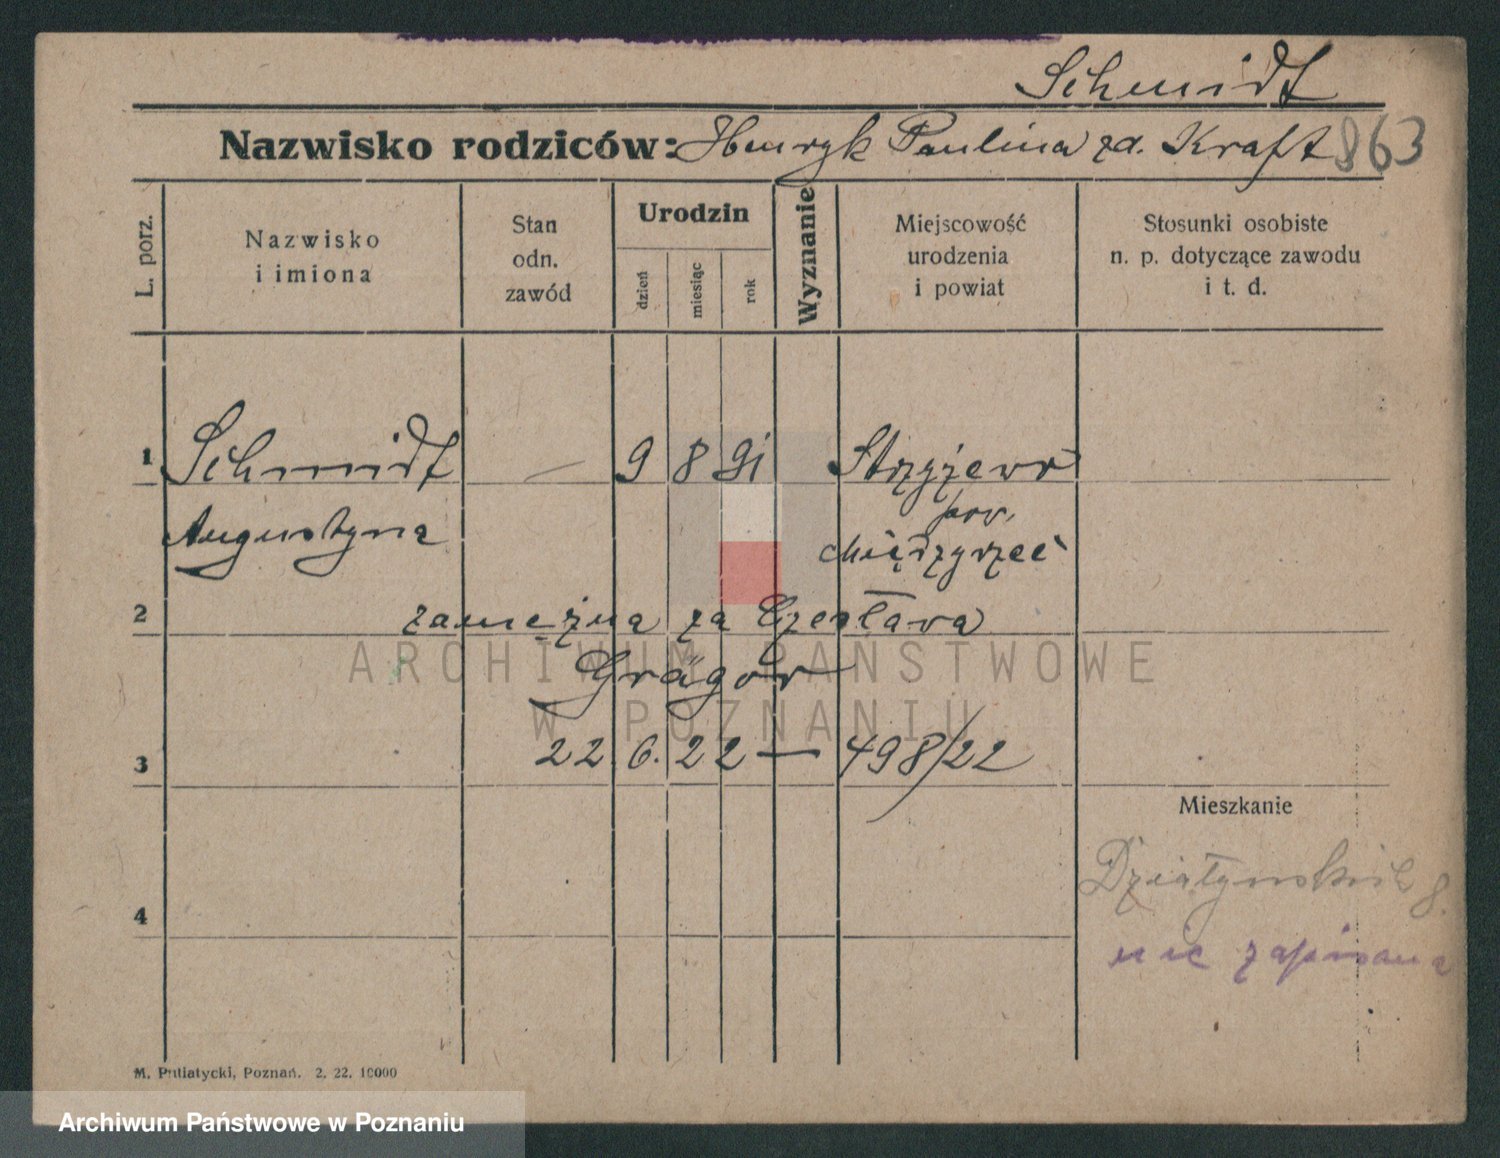 Schmidt
Nazwisko rodziców: Henryk Paulina zd. Kraft 863
L. porz.
Nazwisko
i imiona
Stan
odn.
zawód
Urodzin
dzień
miesiąc
rok
Wyznanie
Miejscowość
urodzenia
i powiat
Stosunki osobiste
n. p. dotyczące zawodu
i t. d.
1 Schmidt — 9 8 91 Strzyżewo
Augustyna pow.
Międzyrzec
2 zamężna za Czesława
Grägor
3 22. 6. 22 — 498/22
Mieszkanie
Działyńskich 8.
4
nie zapisana
M. Putiatycki, Poznań. 2. 22. 10000
ARCHIWUM PAŃSTWOWE
W POZNANIU
Archiwum Państwowe w Poznaniu